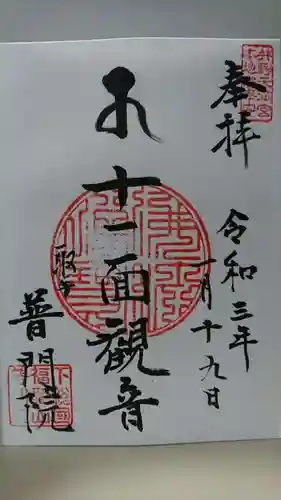 奉拝
令和三年
一月十九日
十一面観音
取手
普門院